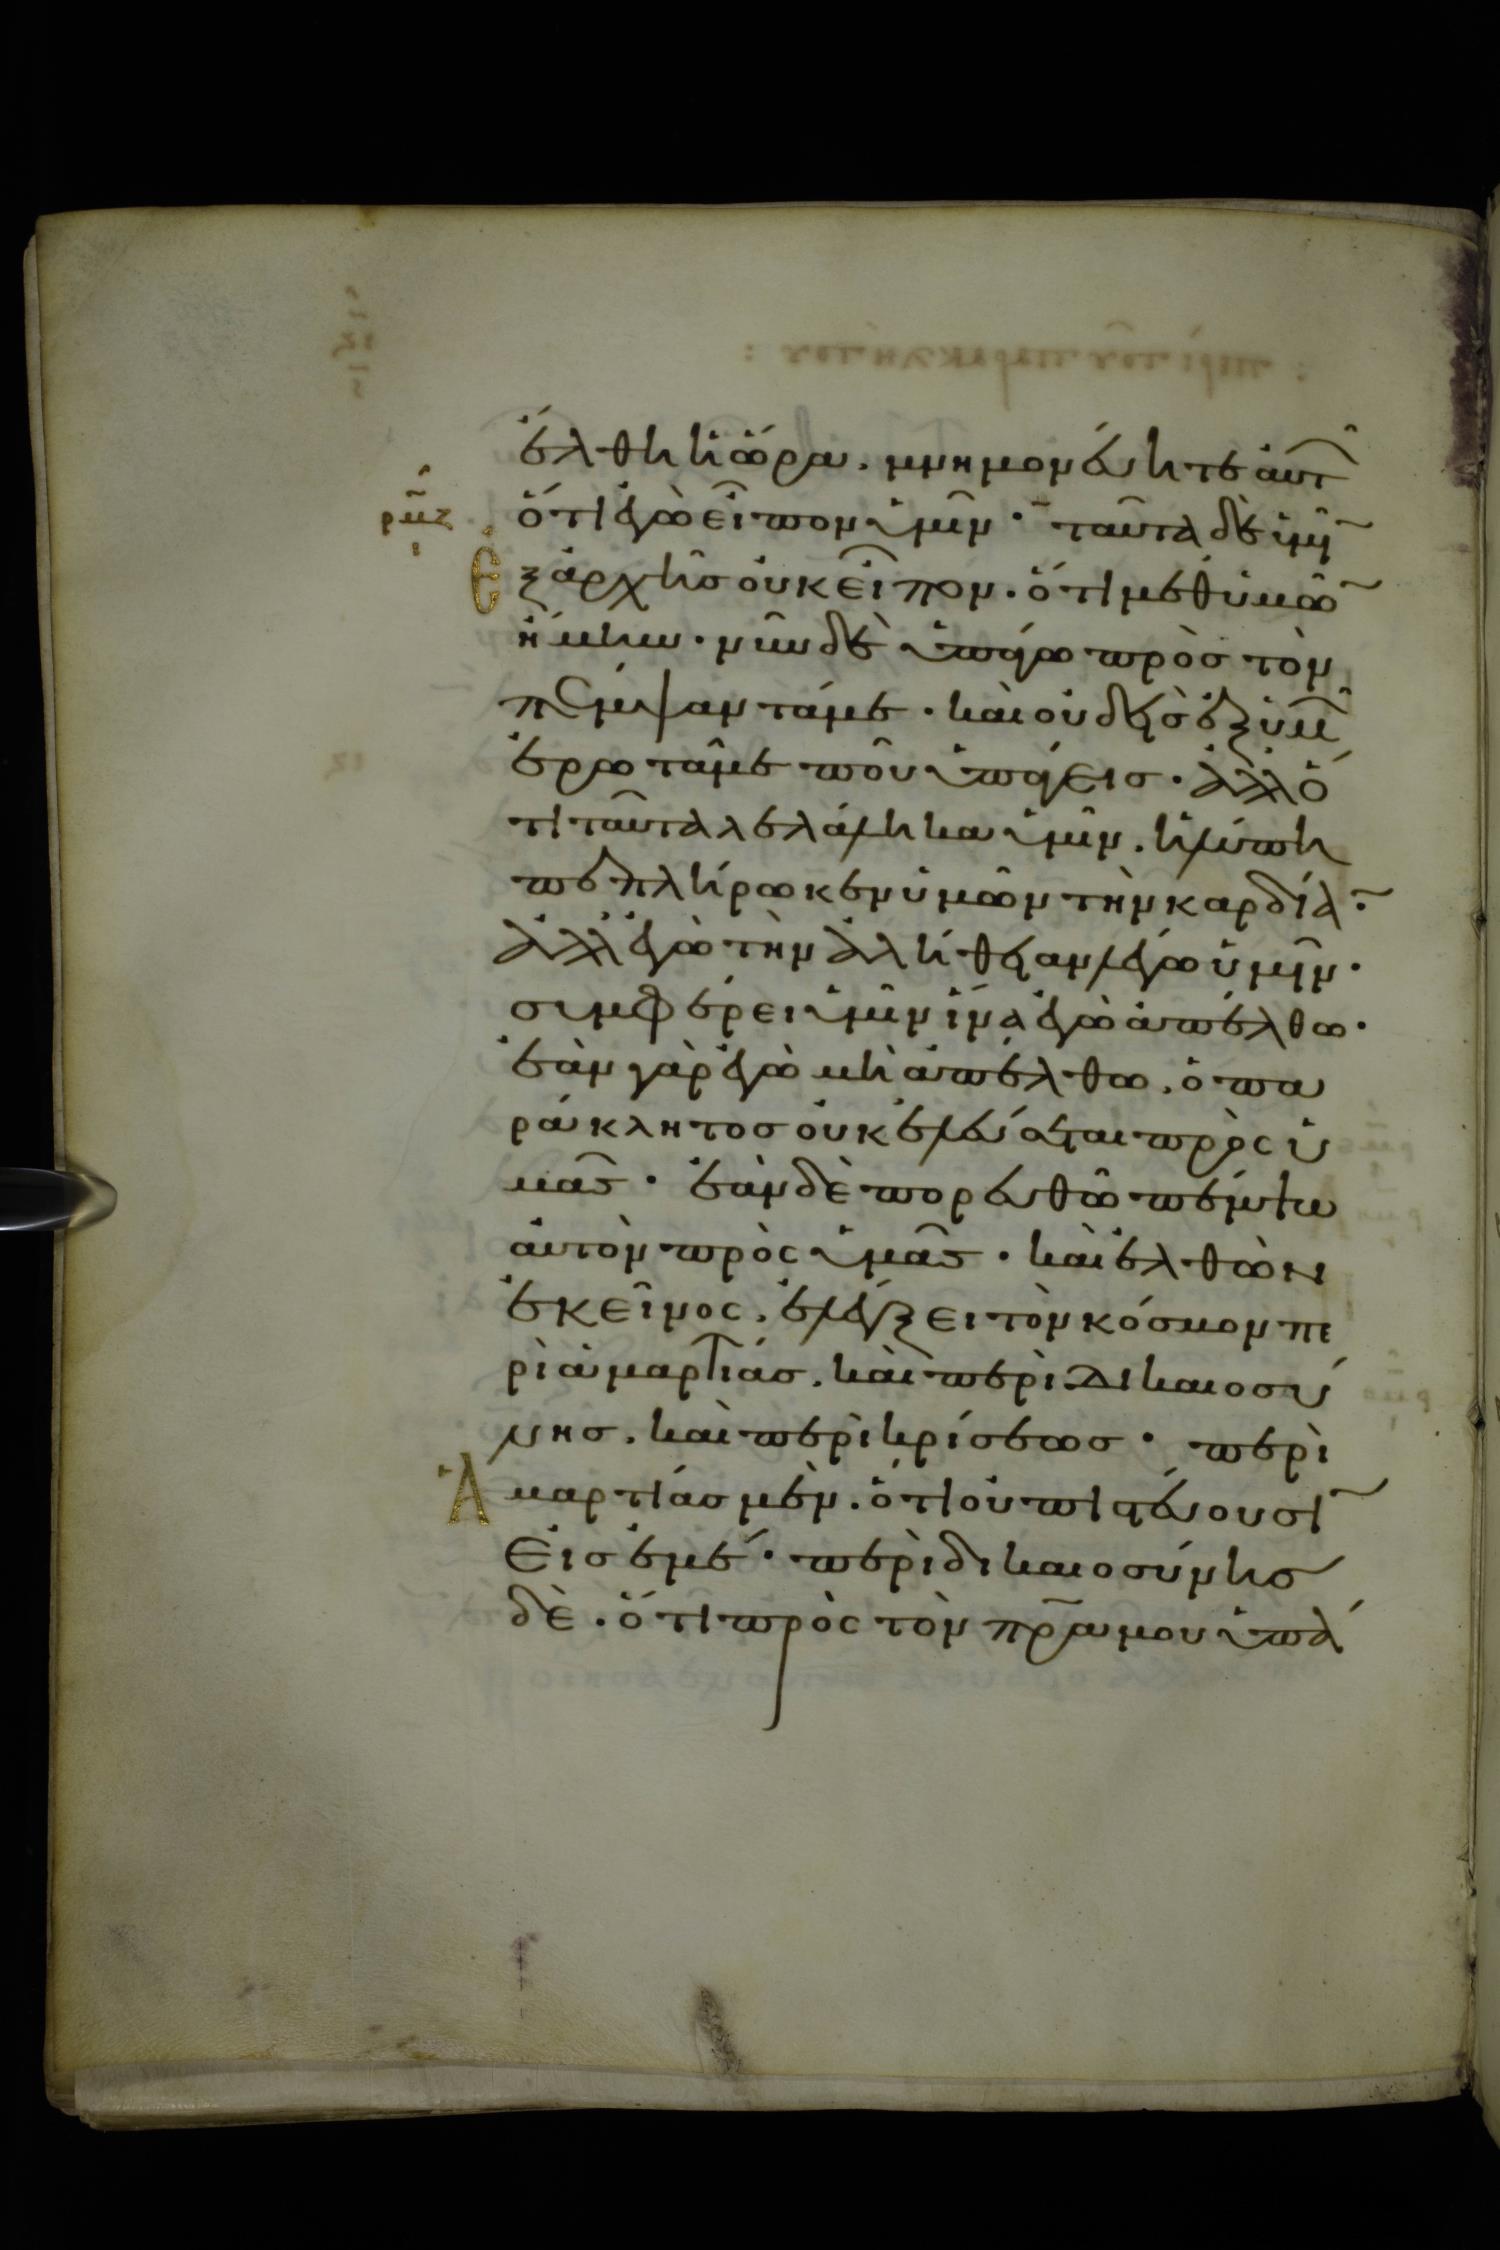 ἔλθη ἡ ὥρα. μνημονεύητε αὐτῶ
ρμζ ὅτι ἐγὼ εἶπον ὑμῖν· ταῦτα δὲ ὑμῖ
Ἐξἀρχῆς οὐκ εἶπον. ὅτι μεθ ὑμῶ
ἤμην. νῦν δὲ ὑπάγω πρὸς τὸν
πέμψαντά με. καὶ οὐδεὶς ἐξ ὑμῶ
ἐρωτᾶ με ποῦ ὑπάγεις. ἀλλ ὅ
τι ταῦτα λελάληκα ὑμῖν. ἡ λύπη
πεπλήρωκεν ὑμῶν τὴν καρδία.
ἀλλ ἐγὼ τὴν ἀλήθειαν λέγω ὑμῖν.
συμφέρει ὑμῖν ἵνα ἐγὼ ἀπέλθω.
ἐὰν γὰρ ἐγὼ μὴ ἀπέλθω. ὁ πα
ράκλητος οὐκ ἐλεύσεται πρὸς ὑ
μᾶς. ἐὰν δὲ πορευθῶ πέμψω
αὐτὸν πρὸς ὑμᾶς. καὶ ἐλθὼν
ἐκεῖνος. ἐλέγξει τὸν κόσμον πε
ρὶ ἁμαρτίας. καὶ περὶ δικαιοσύ
νης. καὶ περὶ κρίσεως. περὶ
Ἁμαρτίας μὲν. ὅτι οὐ πιστεύουσι
εἰς ἐμέ. περὶ δικαιοσύνης
δὲ. ὅτι πρὸς τὸν πρα μου ὑπά